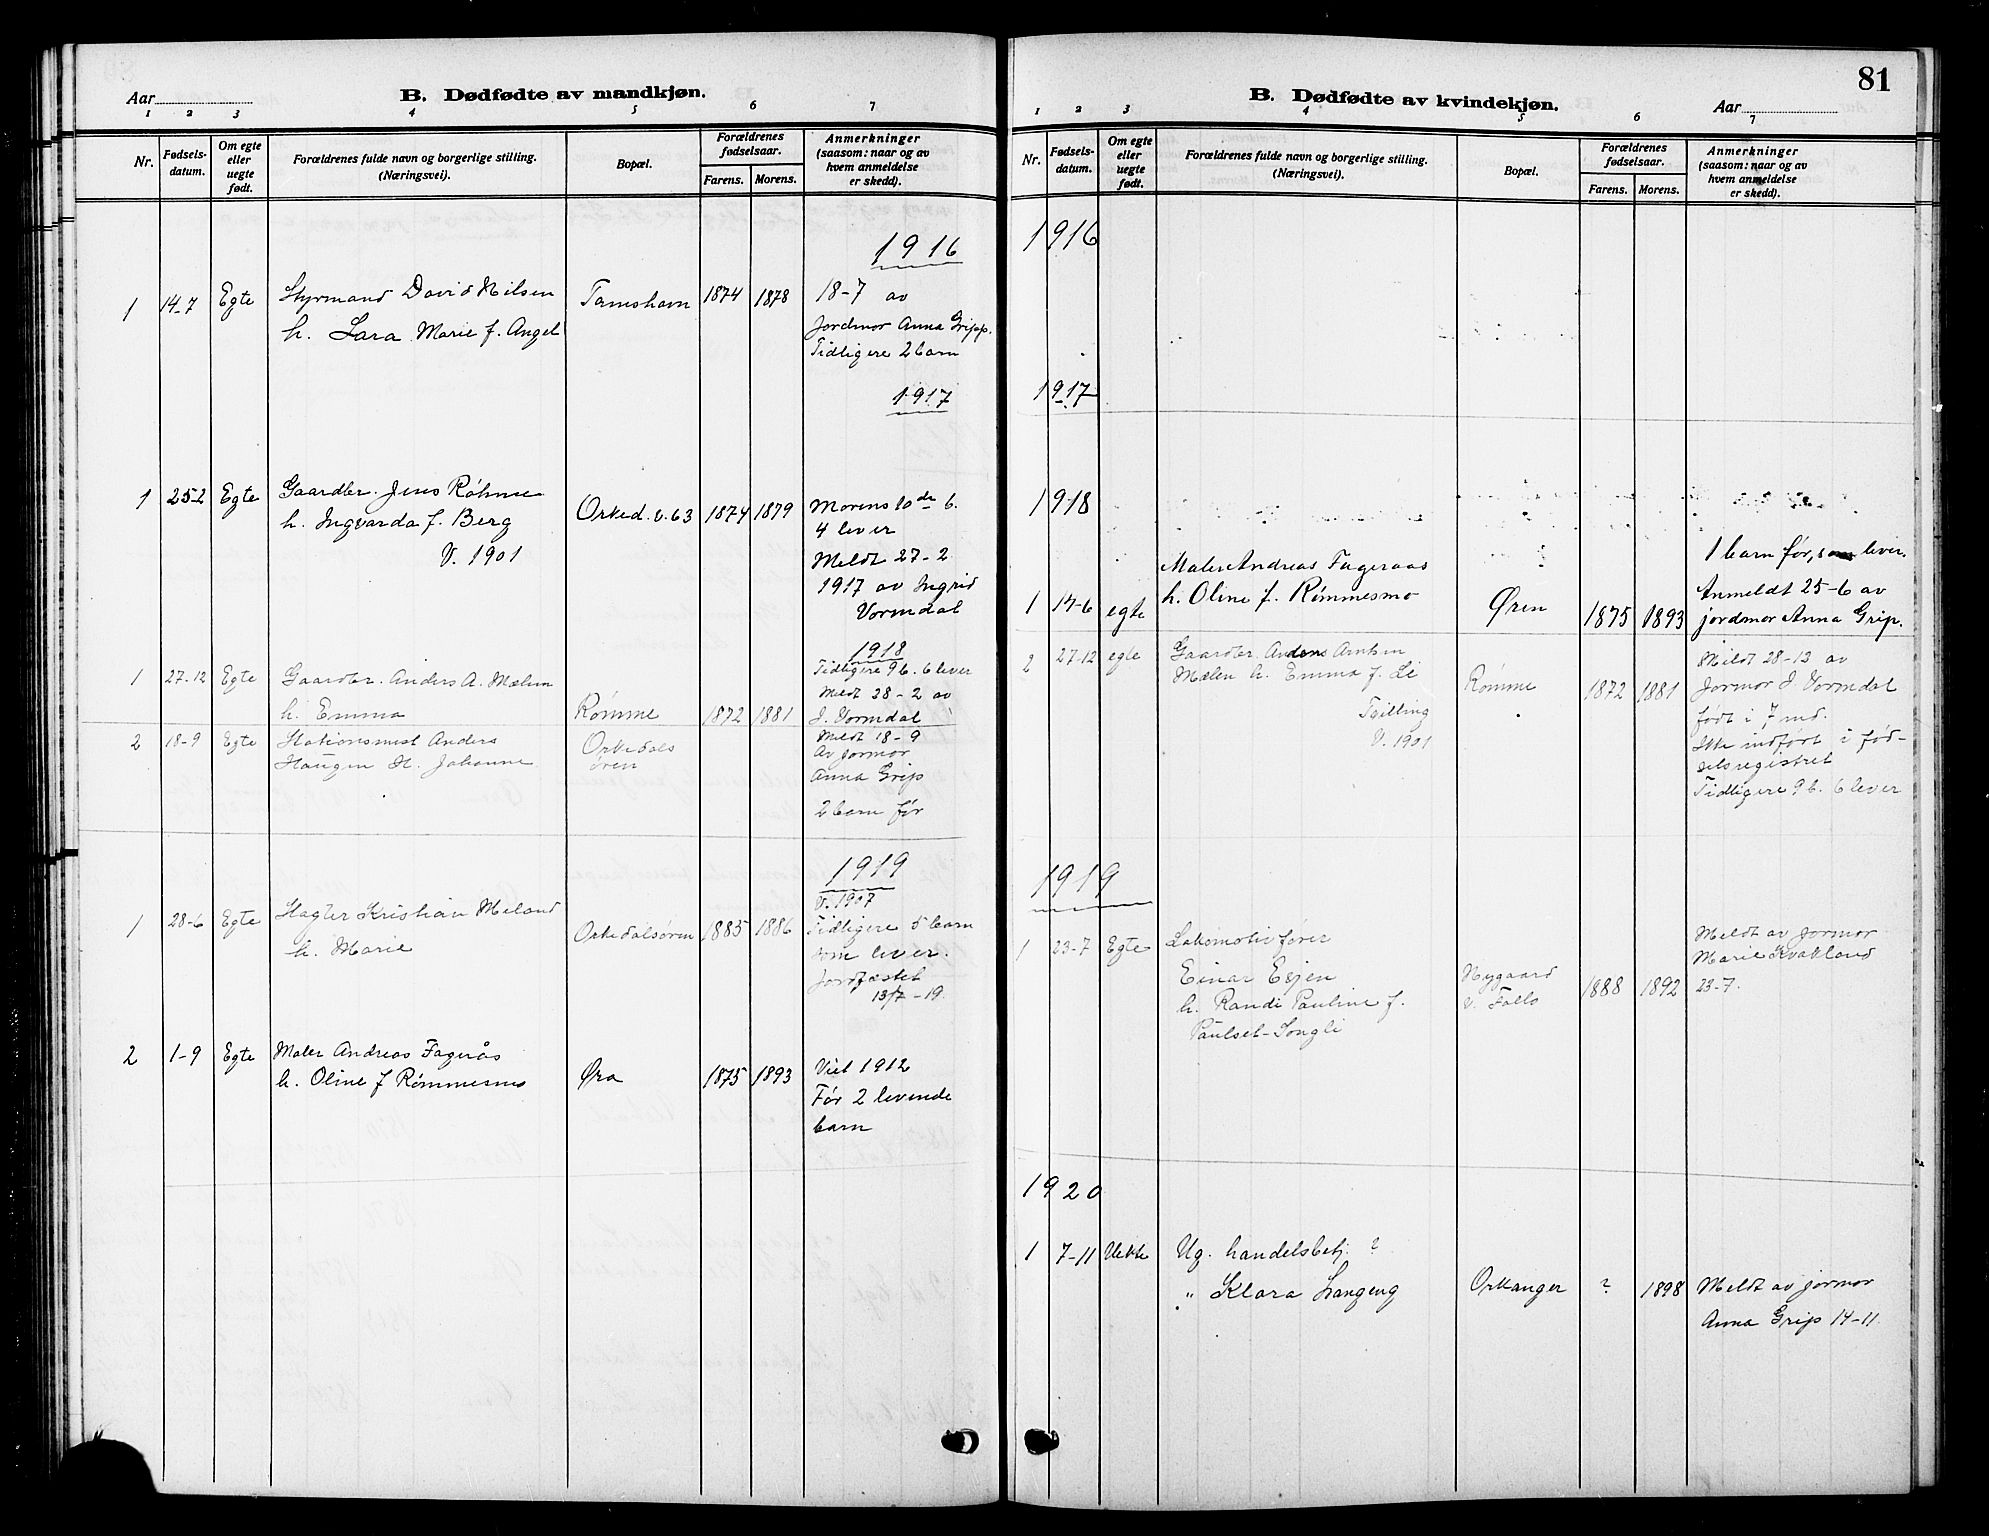 Aar
B. Dødfødte av mandkjøn.
1 2 3 4 5 6 7
Nr.
Fødsels-
datum.
Om egte
eller
uegte
født.
Forældrenes fulde navn og borgerlige stilling.
(Næringsvei).
Bopæl.
Forældrenes
fødselsaar.
Farens. Morens.
Anmerkninger
(saasom: naar og av
hvem anmeldelse
er skedd).
1916
1 14-7 Egte Styrmand David Nilsen Tamshavn 1874 1878 18-7 av
h. Lara Marie f. Angel jordmor Anna Gripp.
Tidligere 2 barn
1917
1 25-2 Egte Gaardbr. Jens Röhme Orked. v. 63 1874 1879 Morens 10de b.
h. Ingvarda f. Berg 4 lever
V. 1901 Meldt 27-2
1917 av Ingrid
Vormdal
1918
1 27-12 Egte Gaardbr. Anders A. Mælen Tidligere 9 b. 6 lever
h. Emma Rømme 1872 1881 Meldt 28-2 av
J. Vormdal
2 18-9 Egte Stationsmest Anders Orkedals Meldt 18-9
Haugen H. Johanne øren Av jormor
Anna Grip
2 barn før
1919
V. 1907
1 28-6 Egte Kristian Meland Orkedalsøren 1885 1886 Tidligere 5 barn
h. Marie som lever.
Jordfæstet
13/7-19.
2 1-9 Egte Maler Andreas Fagerås Øra 1875 1893 Viet 1912
h. Oline f Rømmesmo Før 2 levende
barn
81
B. Dødfødte av kvindekjøn.
Aar
1 2 3 4 5 6 7
Nr.
Fødsels-
datum.
Om egte
eller
uegte
født.
Forældrenes fulde navn og borgerlige stilling.
(Næringsvei).
Bopæl.
Forældrenes
fødselsaar.
Farens. Morens.
Anmerkninger
(saasom: naar og av
hvem anmeldelse
er skedd).
1916
1917
1918
1 barn før, som lever.
Maler Andreas Fageraas Anmeldt 25-6 av
1 14-6 egte h. Oline f. Rømmesmo Øren 1875 1893 jordmor Anna Grip.
2 27-12 egte Gaardbr. Anders Arntsen Rømme 1872 1881 Meldt 28-12 av
Mælen h. Emma f. Li Jormor J. Vormdal
Tvilling født i 7 md.
V. 1901 Ikke indført i fød-
selsregistret
Tidligere 9 b. 6 lever
1919
1 23-7 Egte Lokomotivfører Meldt av jormor
Einar Esjen Nygaard 1888 1892 Marie Kvakland
h. Randi Pauline f. v. Folls 23-7.
Paulset-Songli
1920
1 7-11 Uekte Ug. handelsbetj. ?
" Klara Langeng Orkanger ? 1898 Meldt av jormor
Anna Grip 14-11.